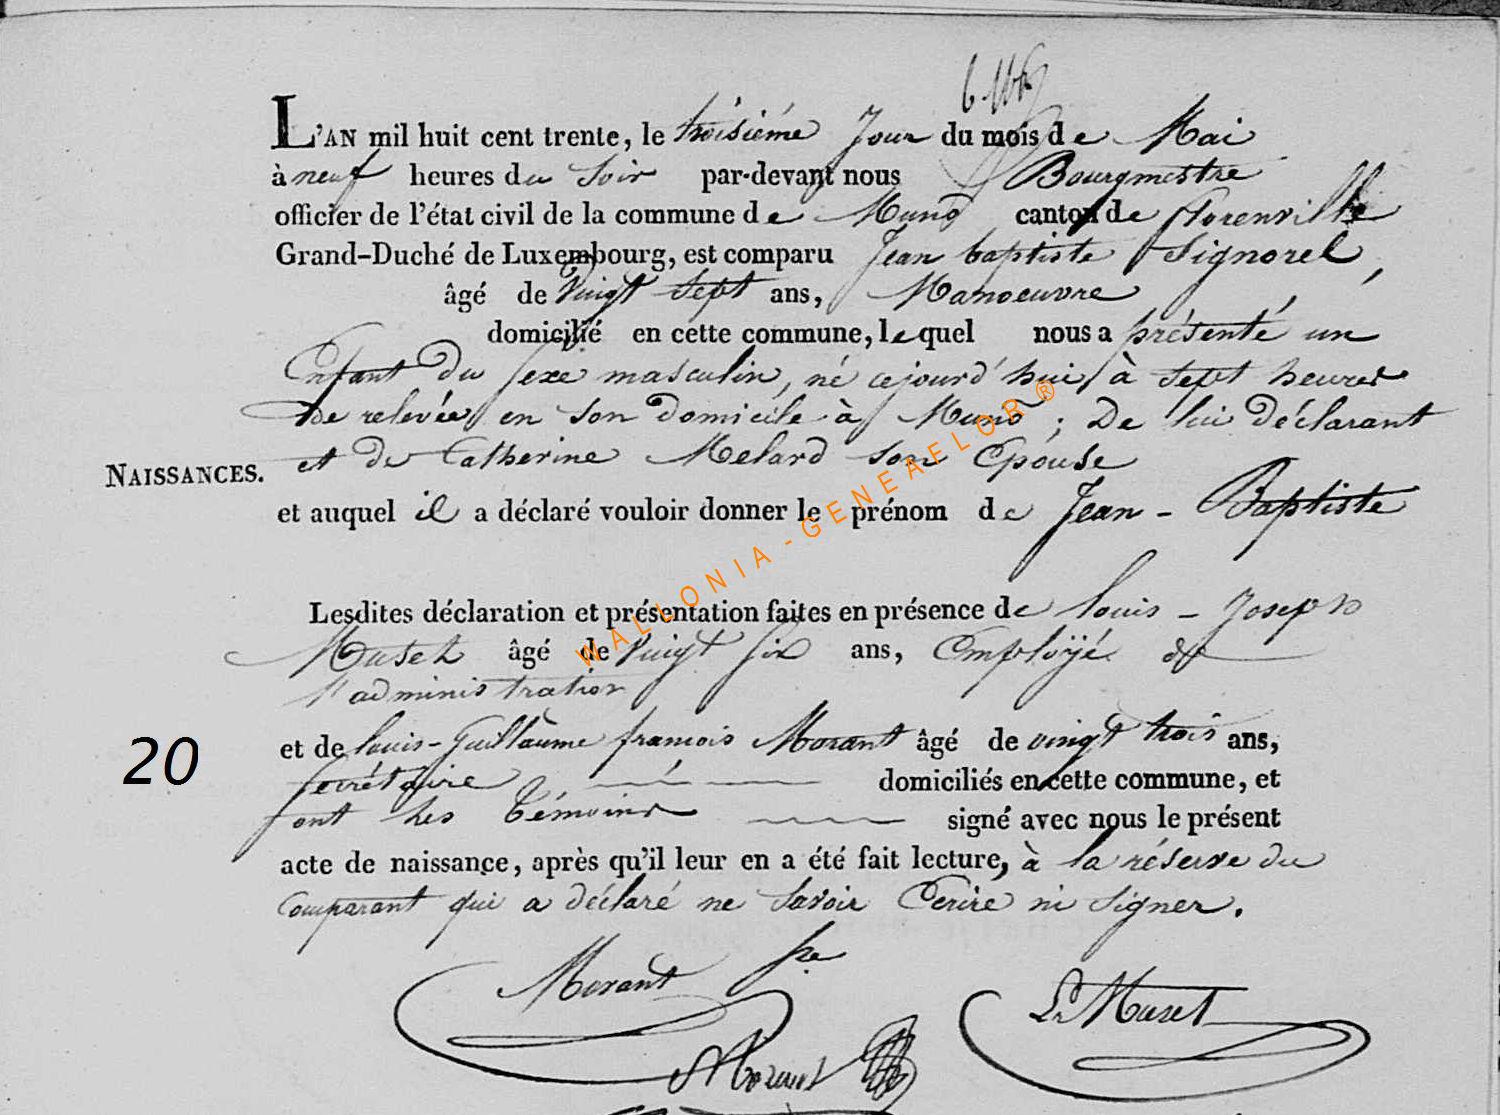 L'AN mil huit cent trente, le troisième Jour du mois de Mai
à neuf heures du Soir par-devant nous Bourgmestre
officier de l'état civil de la commune de Muno canton de florenville
Grand-Duché de Luxembourg, est comparu Jean baptiste Signorel,
âgé de Vingt Sept ans, Manoeuvre
domicilié en cette commune, lequel nous a présenté un
Enfant du Sexe masculin, né cejourd'hui, à Sept heures
de relevée, en son domicile à Muno; De lui déclarant
NAISSANCES. et de Catherine Melard son Epouse
et auquel il a déclaré vouloir donner le prénom de Jean-Baptiste
WALLONIA-GENEAELOR®
Lesdites déclaration et présentation faites en présence de louis-Joseph
âgé de Vingt Six ans, Employé de
l'administration
20 et de louis-Guillaume françois Morant âgé de vingt trois ans,
Secrétaire domiciliés en cette commune, et
ont les témoins signé avec nous le présent
acte de naissance, après qu'il leur en a été fait lecture, à la réserve du
Comparant qui a déclaré ne Savoir Ecrire ni Signer.
Morant
Morant